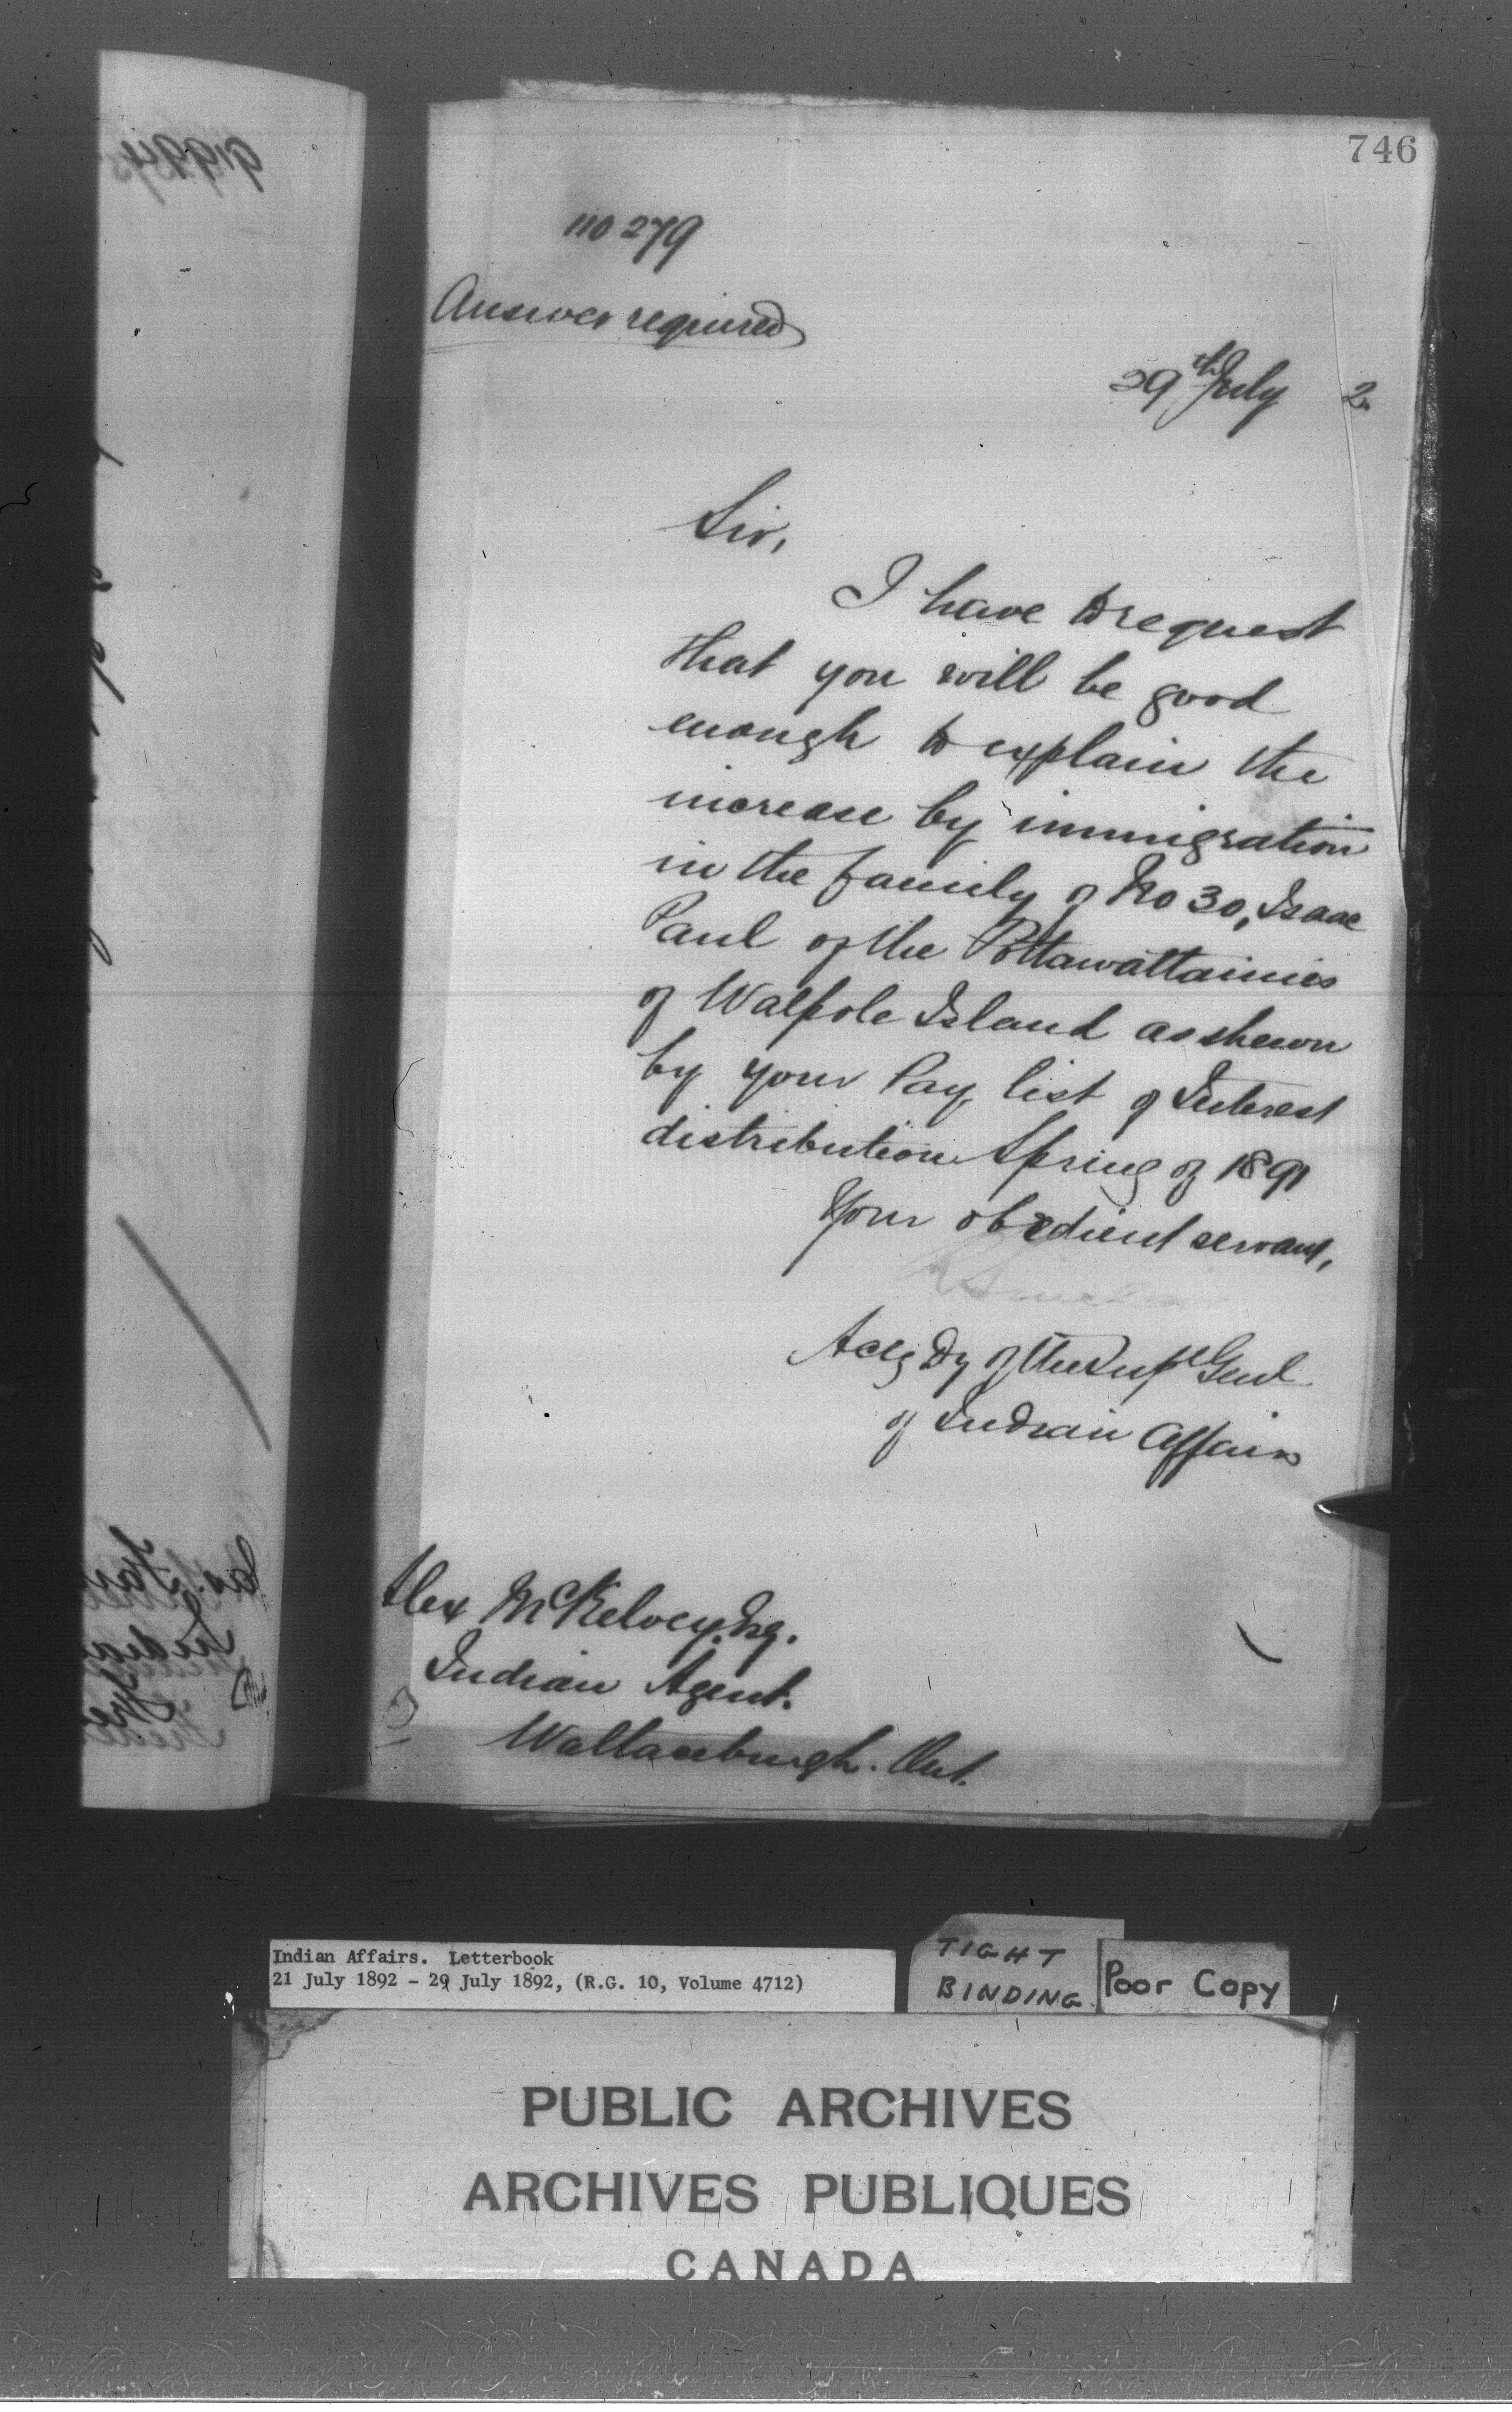 746
110 279
Answer required
29th July 2
Sir,
I have to request
that you will be good
enough to explain the
increase by immigration
in the family of No 30, Isaac
Paul of the Pottawattamies
of Walpole Island as shewn
by your Pay list of Interest
distribution Spring of 1891
Your obedient servant,
Actg Dy of the Supt Genl
of Indian Affairs
Alex McKelvey, Esq.
Indian Agent.
Wallaceburgh. Ont.
Indian Affairs. Letterbook
21 July 1892 - 29 July 1892, (R.G. 10, Volume 4712)
TIGHT
BINDING
Poor Copy
PUBLIC ARCHIVES
ARCHIVES PUBLIQUES
CANADA